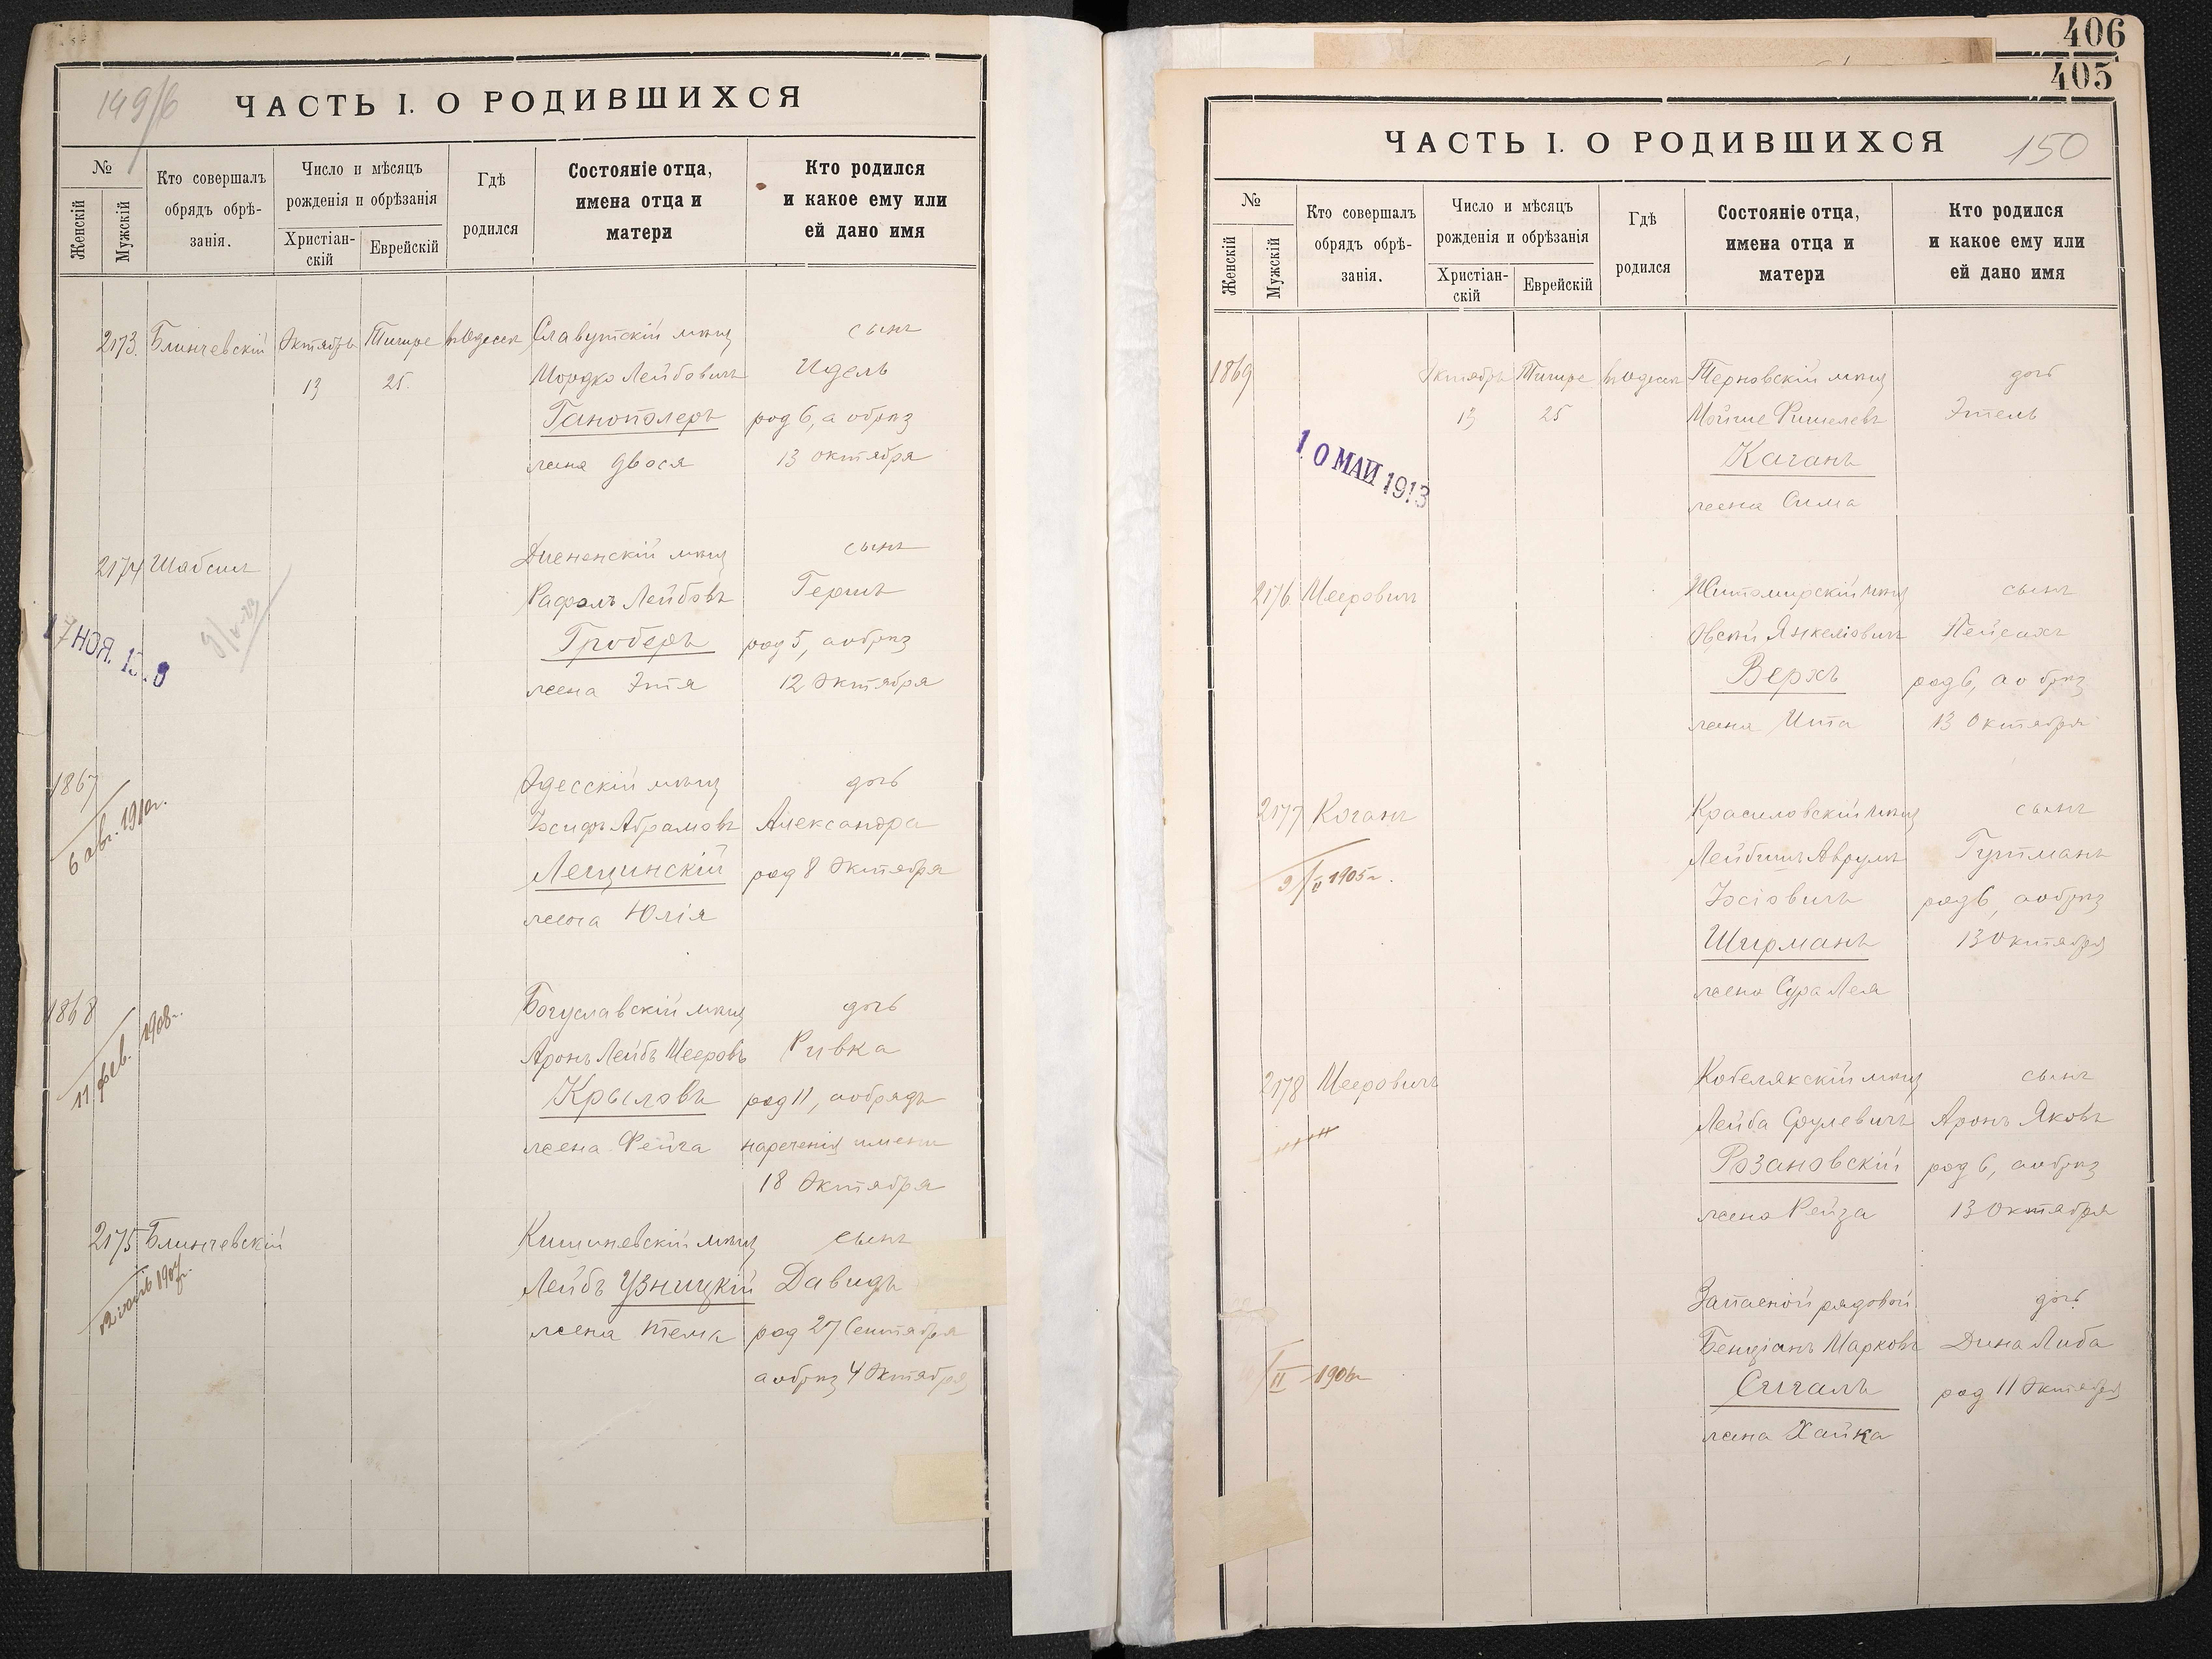 149/6
ЧАСТЬ I. О РОДИВШИХСЯ
№
Женскій
Мужскій
Кто совершалъ
обрядъ обрѣ-
занія.
Число и мѣсяцъ
рожденія и обрѣзанія
Христіан-
скій
Еврейскій
Гдѣ
родился
Состояніе отца,
имена отца и
матери
Кто родился
и какое ему или
ей дано имя
2173. Блинчевскій Октябрь Тишре въ Одессѣ Славутскій мѣщ сынъ
13 25. Мордко Лейбовичъ Идель
Ганополеръ род 6, а обрѣз
жена Двося 13 октября
2174 Шабсис мѣщ сынъ
Рафолъ Лейбовъ Гершъ
Гроберъ род 5, а обрѣз
жена Этя 12 Октября
17 НОЯ.
1867 Одесскій мѣщ дочь
6 авг. 1910г. Іосифъ Абрамовъ Александра
Лещинскій род 8 Октября
жена Юлія
1868 Богуславскій мѣщ дочь
11 фев. 1908г. Аронъ Лейбъ Мееровъ Ривка
Крыловъ род 11, а обрядъ
жена Фейга нареченія имени
18 Октября
2175 Блинчевскій Кишиневскій мѣщ сынъ
Лейбъ Узницкій Давидъ
жена Тема род 27 Сентября
а обрѣз 4 Октября
406
405
ЧАСТЬ I. О РОДИВШИХСЯ 150
№
Женскій
Мужскій
Кто совершалъ
обрядъ обрѣ-
занія.
Число и мѣсяцъ
рожденія и обрѣзанія
Христіан-
скій
Еврейскій
Гдѣ
родился
Состояніе отца,
имена отца и
матери
Кто родился
и какое ему или
ей дано имя
1869 Октябрь Тишре въ Одессѣ Терновскій мѣщ дочь
13 25 Мойше Фишелевъ Этель
Каганъ
10 МАЙ 1913
жена Сима
2176 Мееровичъ Житомирскій мѣщ сынъ
Овсій Янкеліовичъ Пейсахъ
Верхъ род 6, а обрѣз
жена Ита 13 Октября
2177 Коганъ Красиловскій мѣщ сынъ
Лейбишъ Аврумъ Гутманъ
9/II 1905г. Іосіовичъ род 6, а обрѣз
Ширманъ 13 Октября
жена Сура Лея
2178 Мееровичъ Кобелякскій мѣщ сынъ
Лейба Срулевичъ Аронъ Яковъ
Розановскій род 6, а обрѣз
жена Рейза 13 Октября
Запасной рядовой дочь
Бенціанъ Марковъ Дина Либа
Сигалъ род 11 Октября
жена Хайка